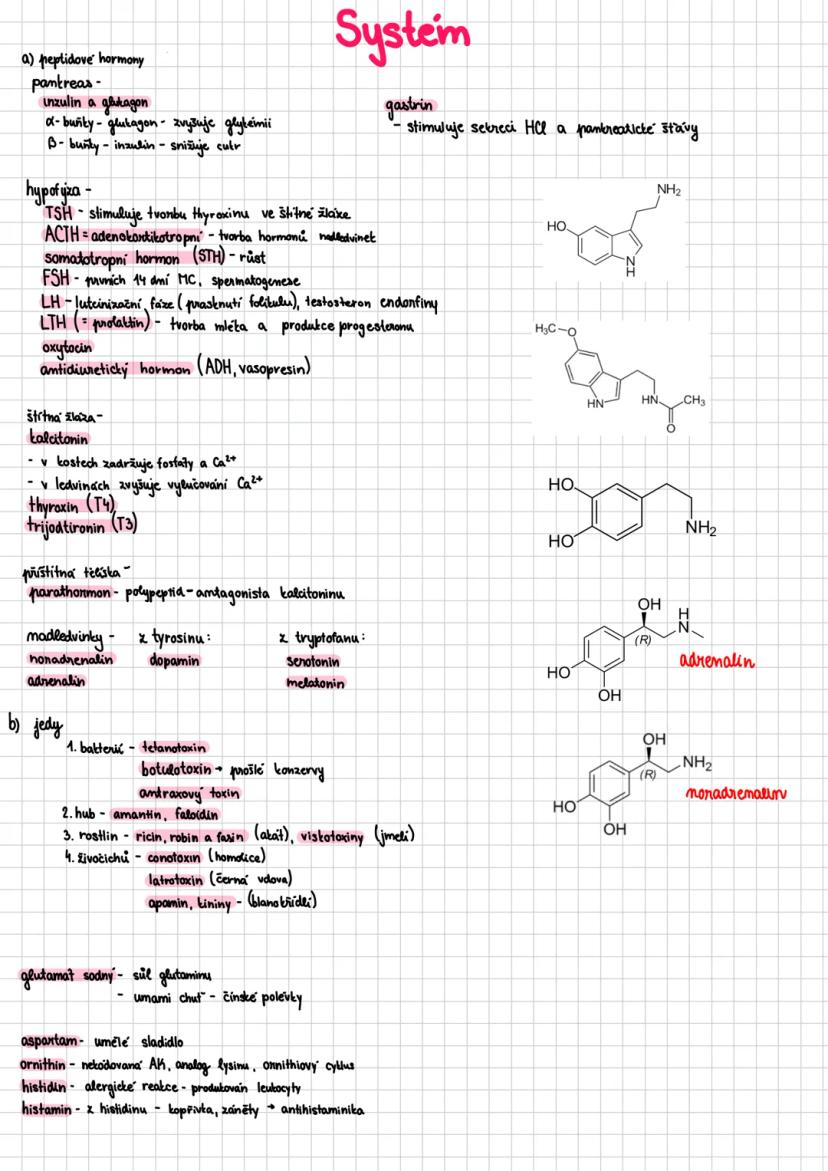 Systém
a) peptidové hormony
pankreas -
inzulin a glukagon
α- buňky - glukagon - zvyšuje glykémii
β- buňky - inzulin - snižuje cukr
gastrin
- stimuluje sekreci HCl a pankreatické šťávy
hypofýza -
TSH - stimuluje tvorbu thyroxinu ve štítné žláze
ACTH = adenokortikotropní - tvorba hormonů nadledvinek
somatotropní hormon (STH) - růst
FSH - prvních 14 dní MC, spermatogenese
LH - luteinizační fáze (prasknutí folikulu), testosteron endorfiny
LTH (= prolaktin) - tvorba mléka a produkce progesteronu
oxytocin
antidiuretický hormon (ADH, vasopresin)
NH₂
HO
N
H
H₃C-O
HN
HN
CH₃
O
štítná žláza -
kalcitonin
- v kostech zadržuje fosfáty a Ca²⁺
- v ledvinách zvyšuje vylučování Ca²⁺
thyroxin (T4)
trijodtironin (T3)
HO
HO
NH₂
příštítná tělíska -
parathormon - polypeptid - antagonista kalcitoninu
nadledvinky - z tyrosinu: z tryptofanu:
noradrenalin dopamin serotonin
adrenalin melatonin
OH
H
N
(R)
HO
OH
adrenalin
b) jedy
1. bakterií - tetanotoxin
botulotoxin → prošlé konzervy
antraxový toxin
2. hub - amantin, faloidin
3. rostlin - ricin, robin a fasin (akát), viskotoxiny (jmelí)
4. živočichů - conotoxin (homolice)
latrotoxin (černá vdova)
apamin, kininy - (blanokřídlí)
OH
NH₂
(R)
HO
OH
noradrenalin
glutamát sodný - sůl glutaminu
- umami chuť - čínské polévky
aspartam - umělé sladidlo
ornithin - nekódovaná AK, analog lysinu, ornithiový cyklus
histidin - alergické reakce - produkován leukocyty
histamin - z histidinu - kopřivka, záněty → antihistaminika